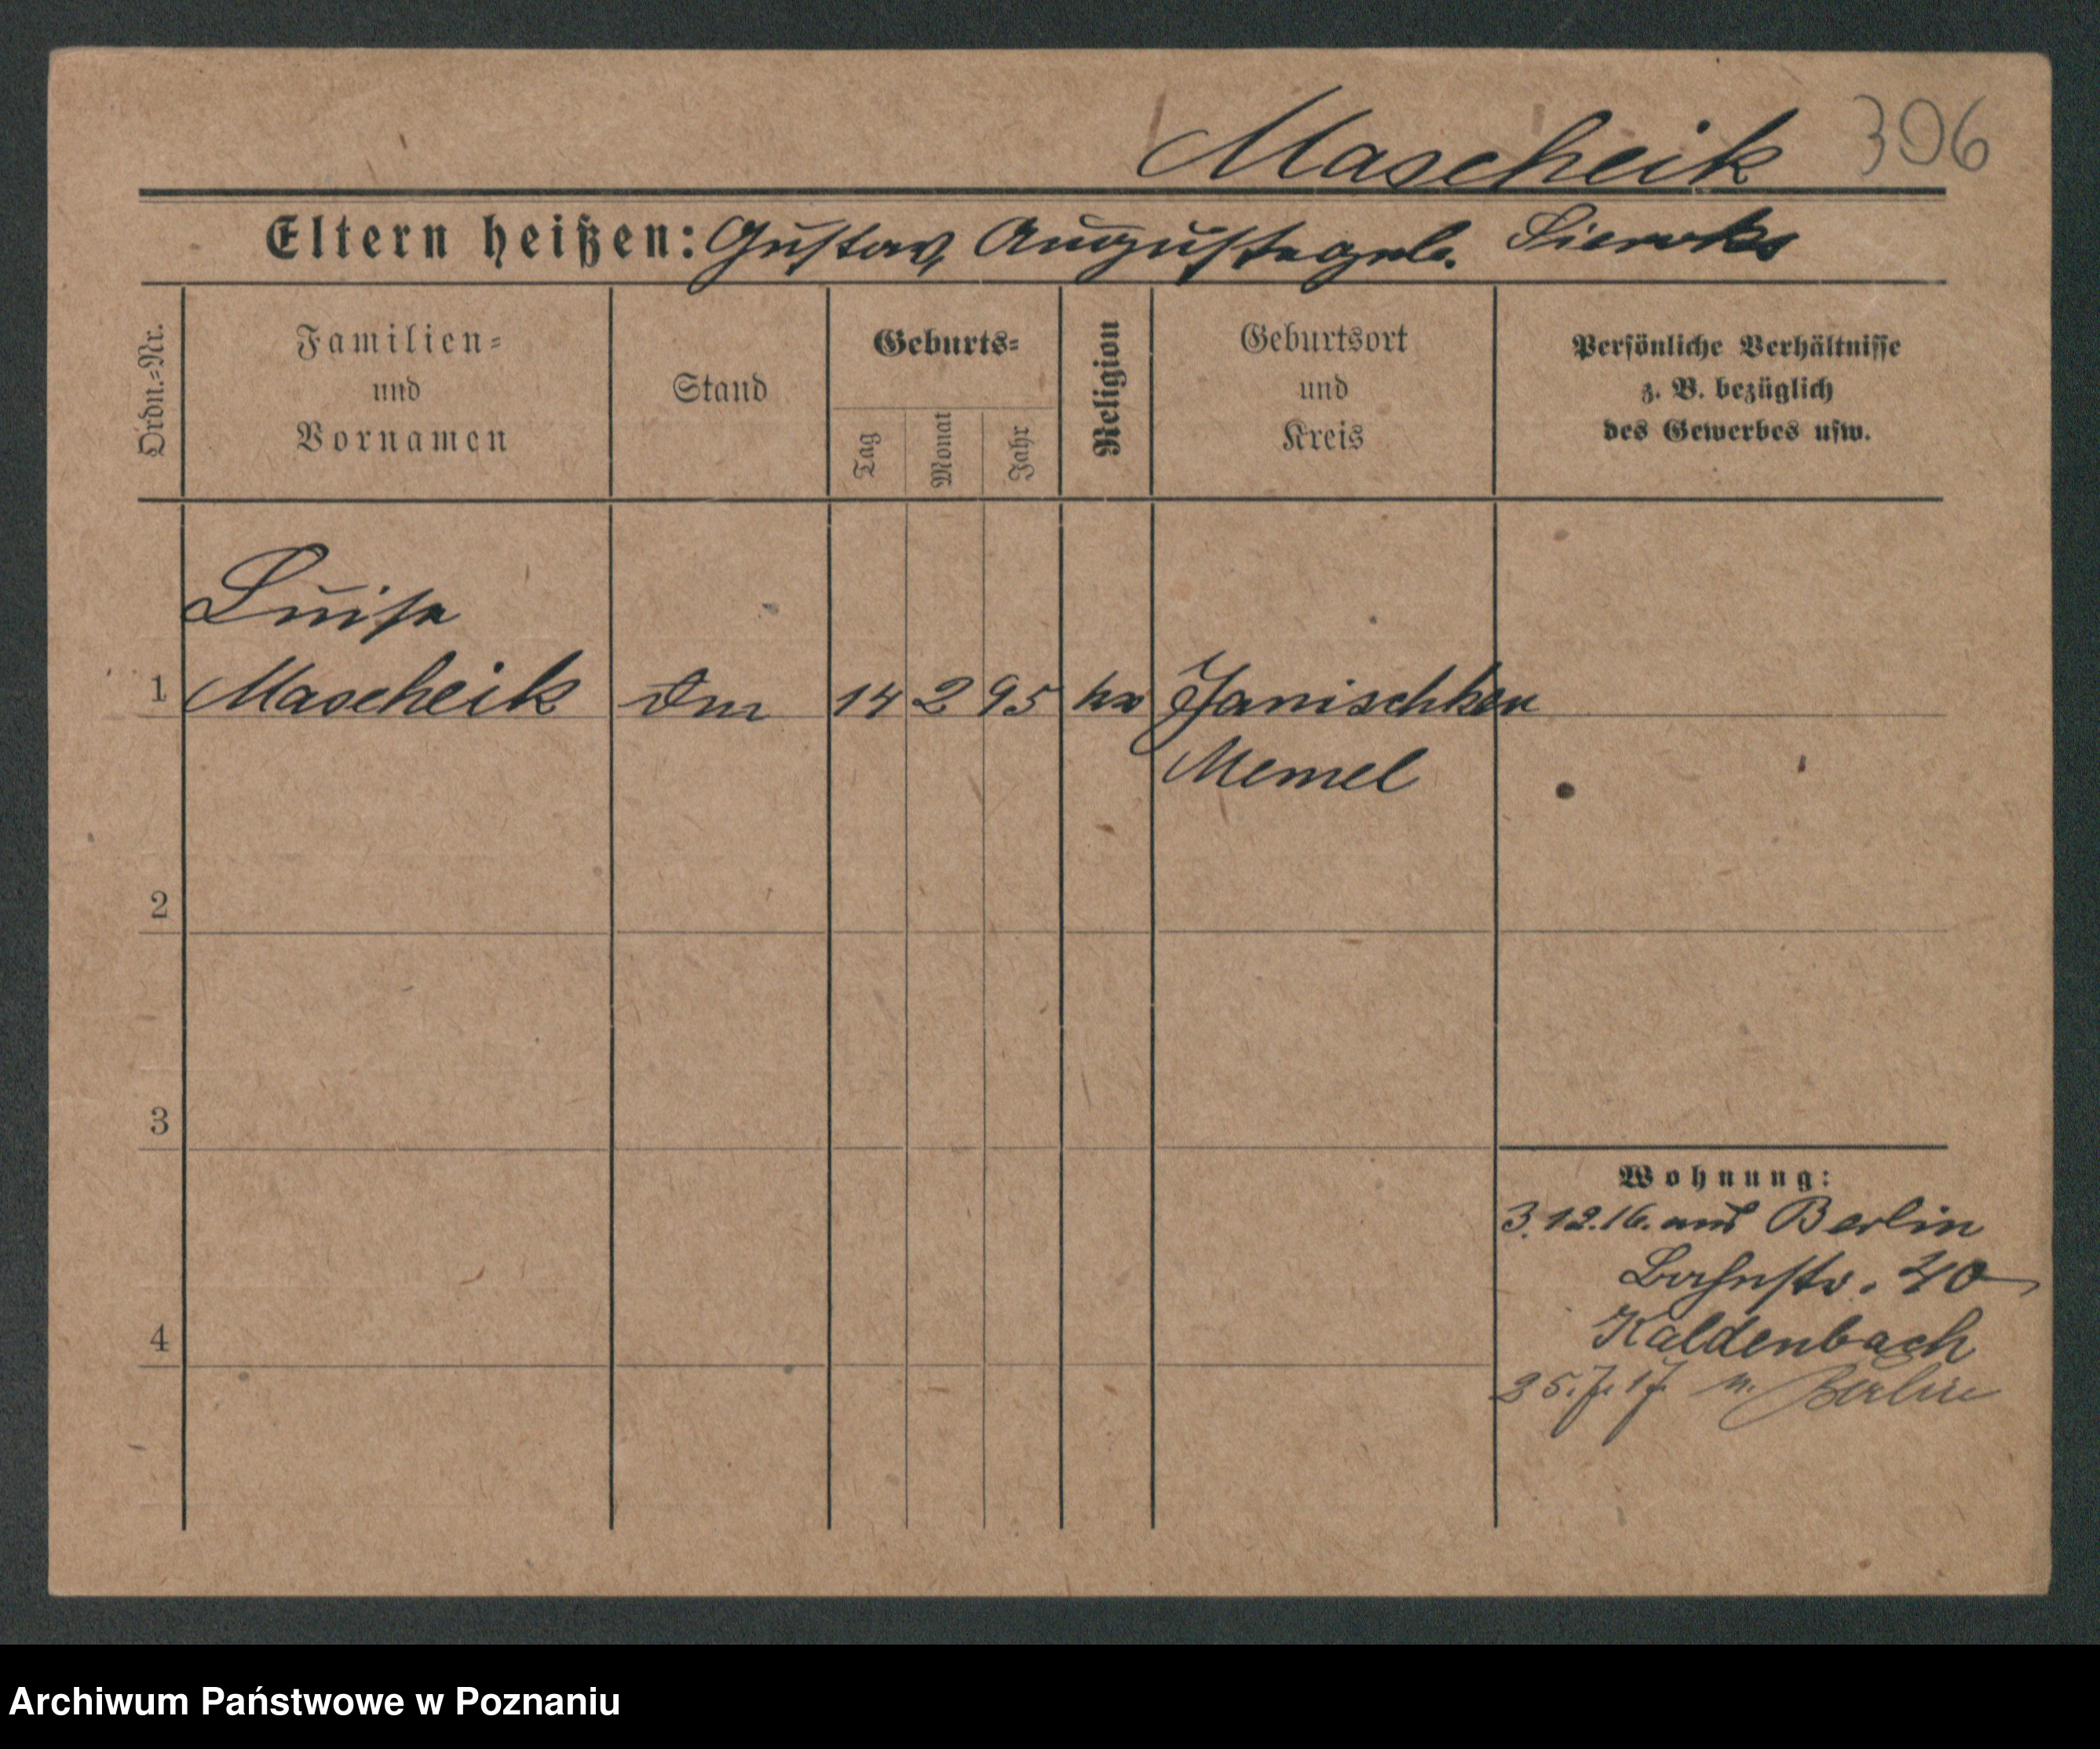 Mascheik 306
Eltern heißen: Gustav, Auguste geb. Sieroks
Ordn.=Nr.
Familien=
und
Vornamen
Stand
Geburts=
Tag
Monat
Jahr
Religion
Geburtsort
und
Kreis
Persönliche Verhältnisse
z. B. bezüglich
des Gewerbes usw.
Luise
1 Mascheik 14 2 95 Janischken
Memel
2
3
Wohnung:
3.12.16. aus Berlin
40
Kaldenbach
4
25.7.17 n. Berlin
Archiwum Państwowe w Poznaniu